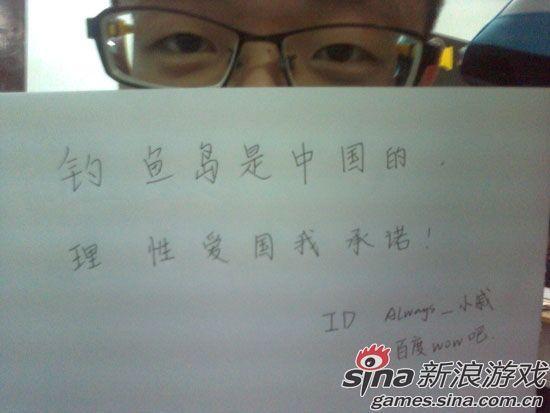 钓鱼岛是中国的.
理性爱国我承诺!
ID Always_小威
百度wow吧.
sina新浪游戏
games.sina.com.cn